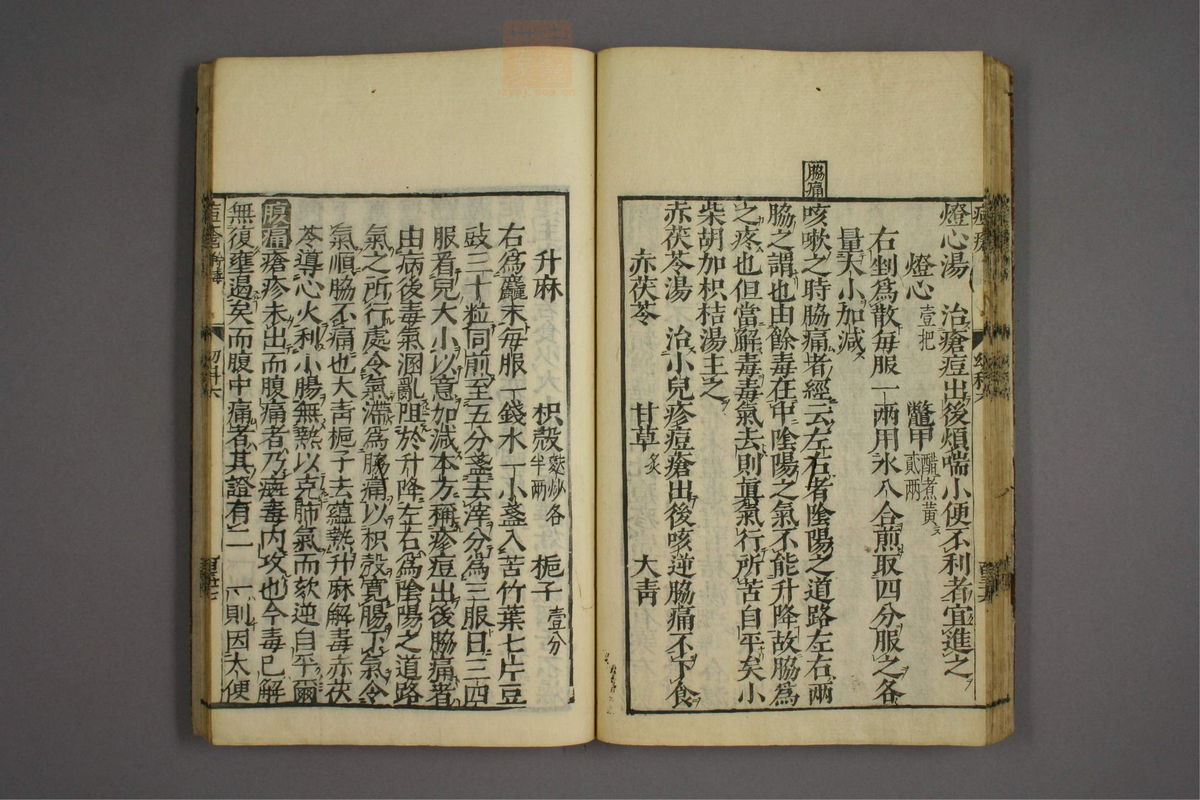 脇痛
燈心湯　治瘡痘出後煩喘小便不利者宜進之
燈心壹把　鼈甲醋煮黄貳兩
右剉爲散毎服一兩用水八合煎取四分服之各
量大小加減
咳嗽之時脇痛者經云左右者陰陽之道路左右兩
脇之謂也由餘毒在中陰陽之氣不能升降故脇爲
之疼也但當解毒毒氣去則眞氣行所苦自平矣小
柴胡加枳桔湯主之
赤茯苓湯　治小兒疹痘瘡出後咳逆脇痛不下食
赤茯苓　甘草炙　大青
升麻　枳殼麩炒各半兩　梔子壹分
右爲麤末毎服一錢水一小盞入苦竹葉七片豆
豉三十粒同煎至五分盞去滓分爲三服日三四
服看兒大小以意加減本方稱疹痘出後脇痛者
由病後毒氣溷亂阻於升降左右爲陰陽之道路
氣之所行處令氣滯爲脇痛以枳殼寛腸下氣令
氣順脇不痛也大青梔子去蘊熱升麻解毒赤茯
苓導心火利小腸無熱以克肺氣而欬逆自平爾
腹痛瘡疹未出而腹痛者乃病毒内攻也今毒已解
無復壅遏矣而腹中痛者其證有二一則因大便
痘瘡
幼科六